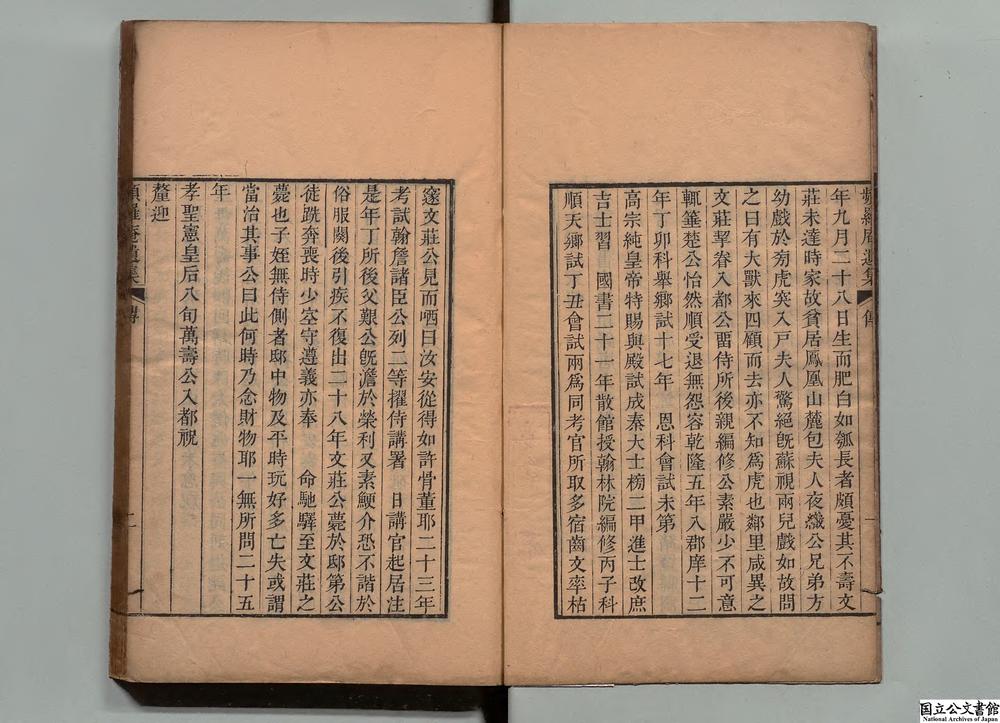 頻羅庵遺集 傳 一
年九月二十八日生而肥白如瓠長者頗憂其不壽文
莊未達時家故貧居鳳凰山麓包夫人夜織公兄弟方
幼戲於旁虎突入戸夫人驚絕旣蘇視兩兒戲如故問
之曰有大獸來四顧而去亦不知爲虎也鄰里咸異之
文莊挈眷入都公留侍所後親編修公素嚴少不可意
輒箠楚公怡然順受退無怨容乾隆五年入郡庠十二
年丁卯科舉鄉試十七年　恩科會試未第
高宗純皇帝特賜與殿試成秦大士榜二甲進士改庶
吉士習　國書二十一年散館授翰林院編修丙子科
順天鄉試丁丑會試兩爲同考官所取多宿齒文率枯
邃文莊公見而哂曰汝安從得如許骨董耶二十三年
考試翰詹諸臣公列二等擢侍講署　日講官起居注
是年丁所後父艱公旣澹於榮利又素鯁介恐不諧於
俗服闋後引疾不復出二十八年文莊公薨於邸第公
徒跣奔喪時少空守遵義亦奉　命馳驛至文莊之
薨也子姪無侍側者邸中物及平時玩好多亡失或謂
當治其事公曰此何時乃念財物耶一無所問二十五
年
孝聖憲皇后八旬萬壽公入都祝
釐迎
頻羅庵遺集 傳 二
国立公文書館
National Archives of Japan